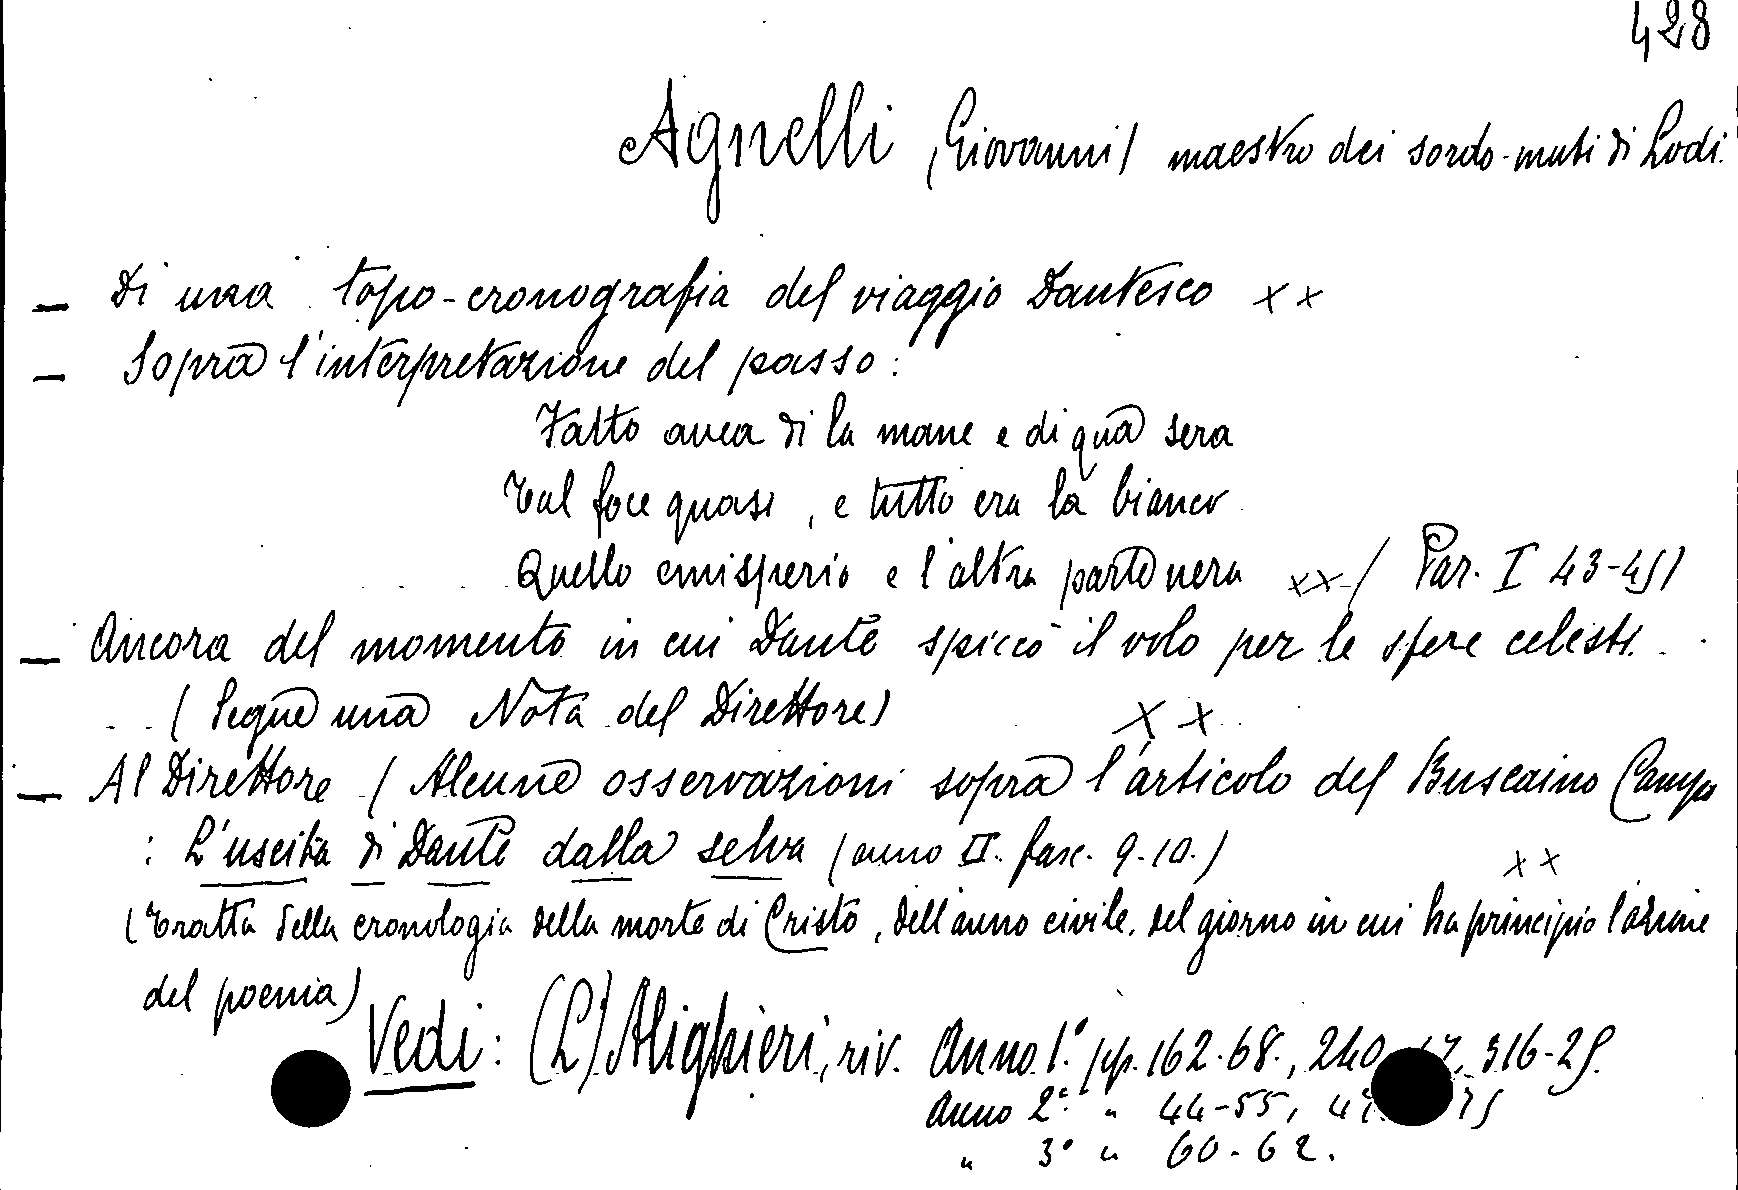 428
Agnelli (Giovanni) maestro dei sordo-muti di Lodi.
— Di una topo-cronografia del viaggio Dantesco x x
— Sopra l'interpretazione del passo:
Fatto avea di la mane e di qua sera
Tal foce quasi, e tutto era là bianco
Quello emisperio e l'altra parte nera xx (Par. I 43-45)
— Ancora del momento in cui Dante spiccò il volo per le sfere celesti.
(Segue una Nota del Direttore) x x
— Al Direttore (Alcune osservazioni sopra l'articolo del Buscaino Campo
: L'uscita di Dante dalla selva (anno II. fasc. 9-10.) x x
(Tratta della cronologia della morte di Cristo, dell'anno civile, del giorno in cui ha principio l'azione
del poema)
Vedi: (L') Alighieri, riv. Anno 1.° pp. 162-68., 240 47, 316-29.
Anno 2° " 44-55, 75
" 3° " 60-62.